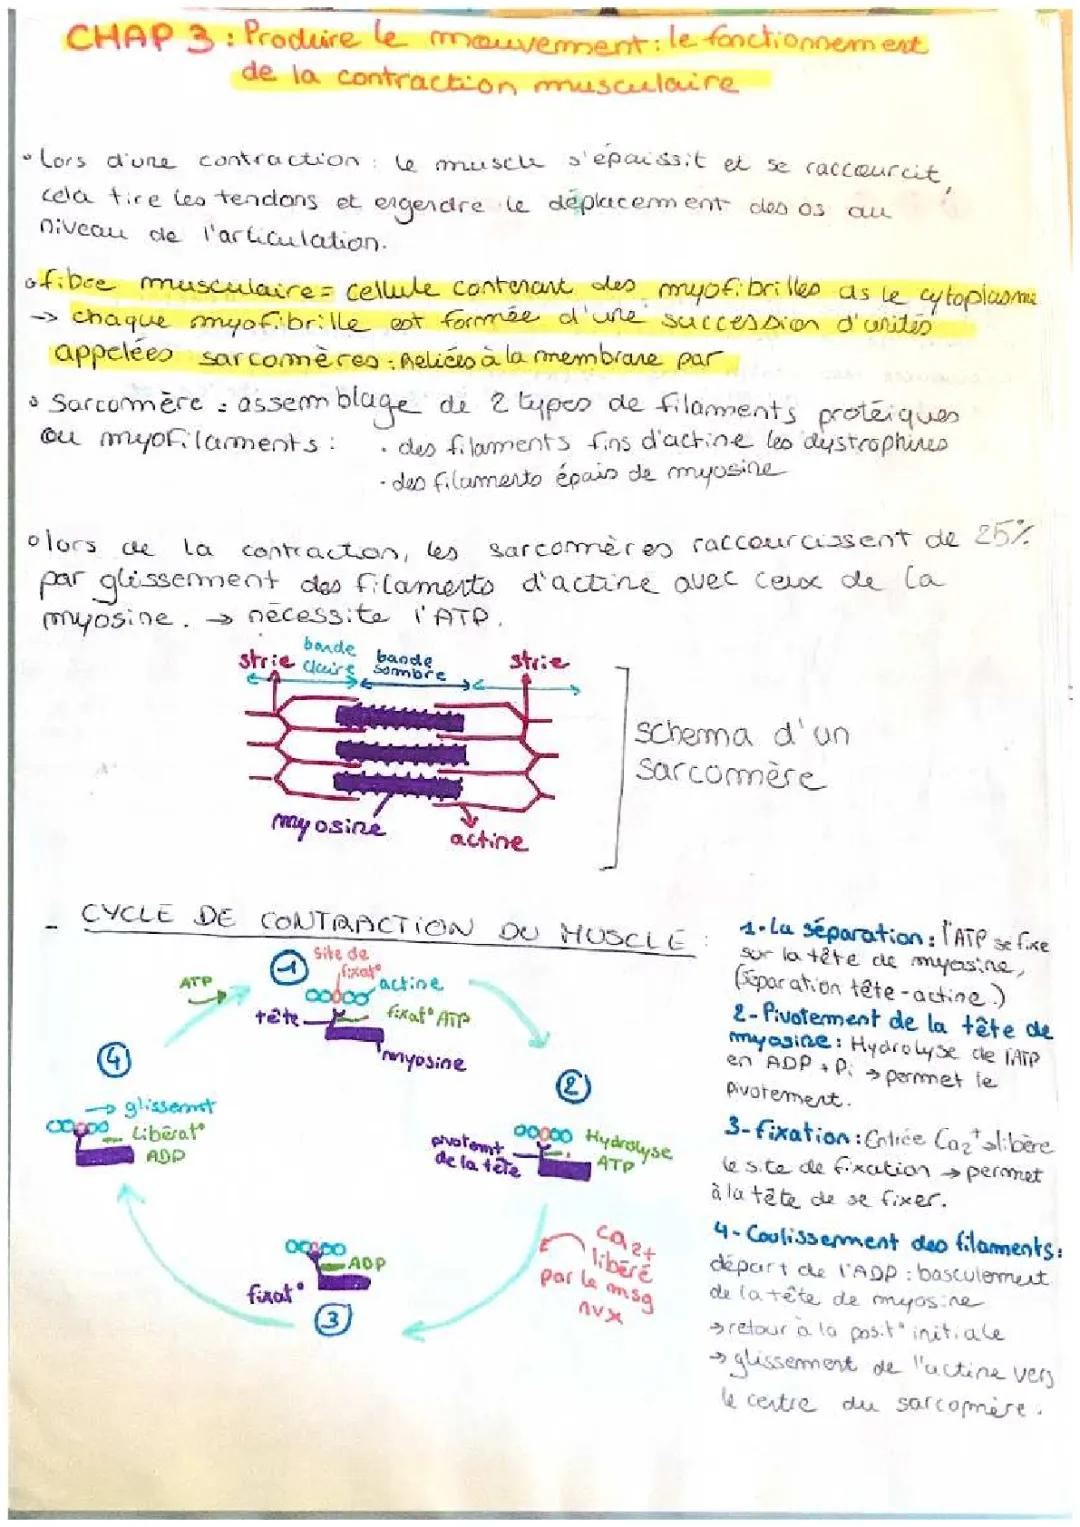 CHAP 3 : Produire le mouvement : le fonctionnement
de la contraction musculaire
• Lors d'une contraction : le muscle s'épaissit et se raccourcit,
cela tire les tendons et engendre le déplacement des os au
niveau de l'articulation.
• fibre musculaire = cellule contenant des myofibrilles ds le cytoplasme
→ chaque myofibrille est formée d'une succession d'unités
appelées sarcomères. Reliées à la membrane par
• Sarcomère = assemblage de 2 types de filaments protéiques
ou myofilaments : • des filaments fins d'actine les dystrophines
• des filaments épais de myosine
• lors de la contraction, les sarcomères raccourcissent de 25%
par glissement des filaments d'actine avec ceux de la
myosine. → nécessite l'ATP.
strie bande claire bande sombre strie
schema d'un
sarcomère
myosine
actine
- CYCLE DE CONTRACTION DU MUSCLE :
1
site de
fixat°
actine
ATP
tête
fixat° ATP
myosine
4
2
→ glissemt
Libérat°
ADP
pivotemt
de la tête
Hydrolyse
ATP
Ca2+
libéré
par le msg
nvx
ADP
fixat°
3
1. La séparation : l'ATP se fixe
sur la tête de myosine,
(séparation tête-actine.)
2- Pivotement de la tête de
myosine : Hydrolyse de l'ATP
en ADP + Pi → permet le
pivotement.
3- fixation : Entrée Ca2+ libère
le site de fixation → permet
à la tête de se fixer.
4- Coulissement des filaments :
départ de l'ADP : basculement
de la tête de myosine
→ retour à la posit° initiale
→ glissement de l'actine vers
le centre du sarcomère.